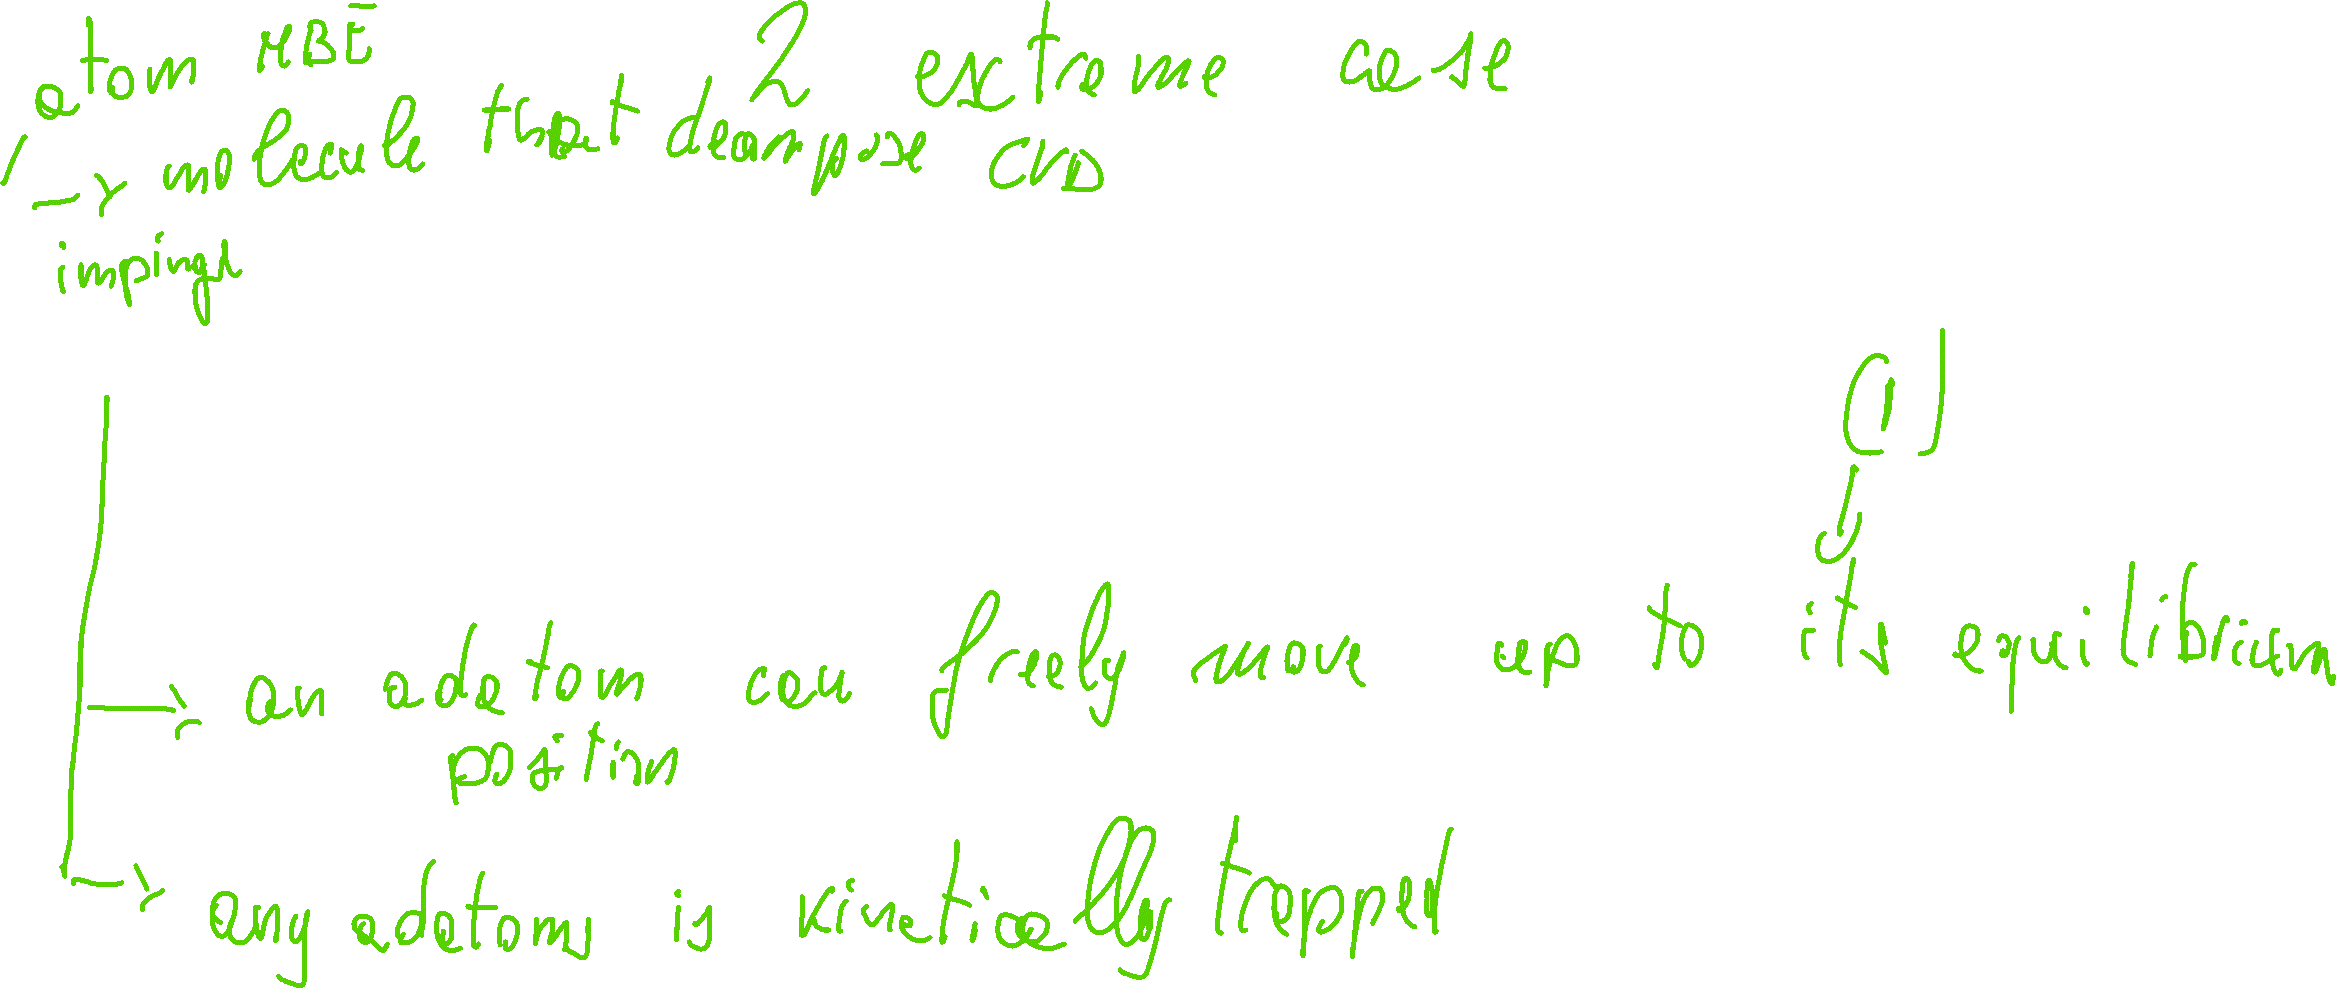 atom MBE
2 extreme case
→ molecule that decompose CVD
impinge
(1)
→ an adatom can freely move up to its equilibrium
position
→ any adatoms is kinetically trapped